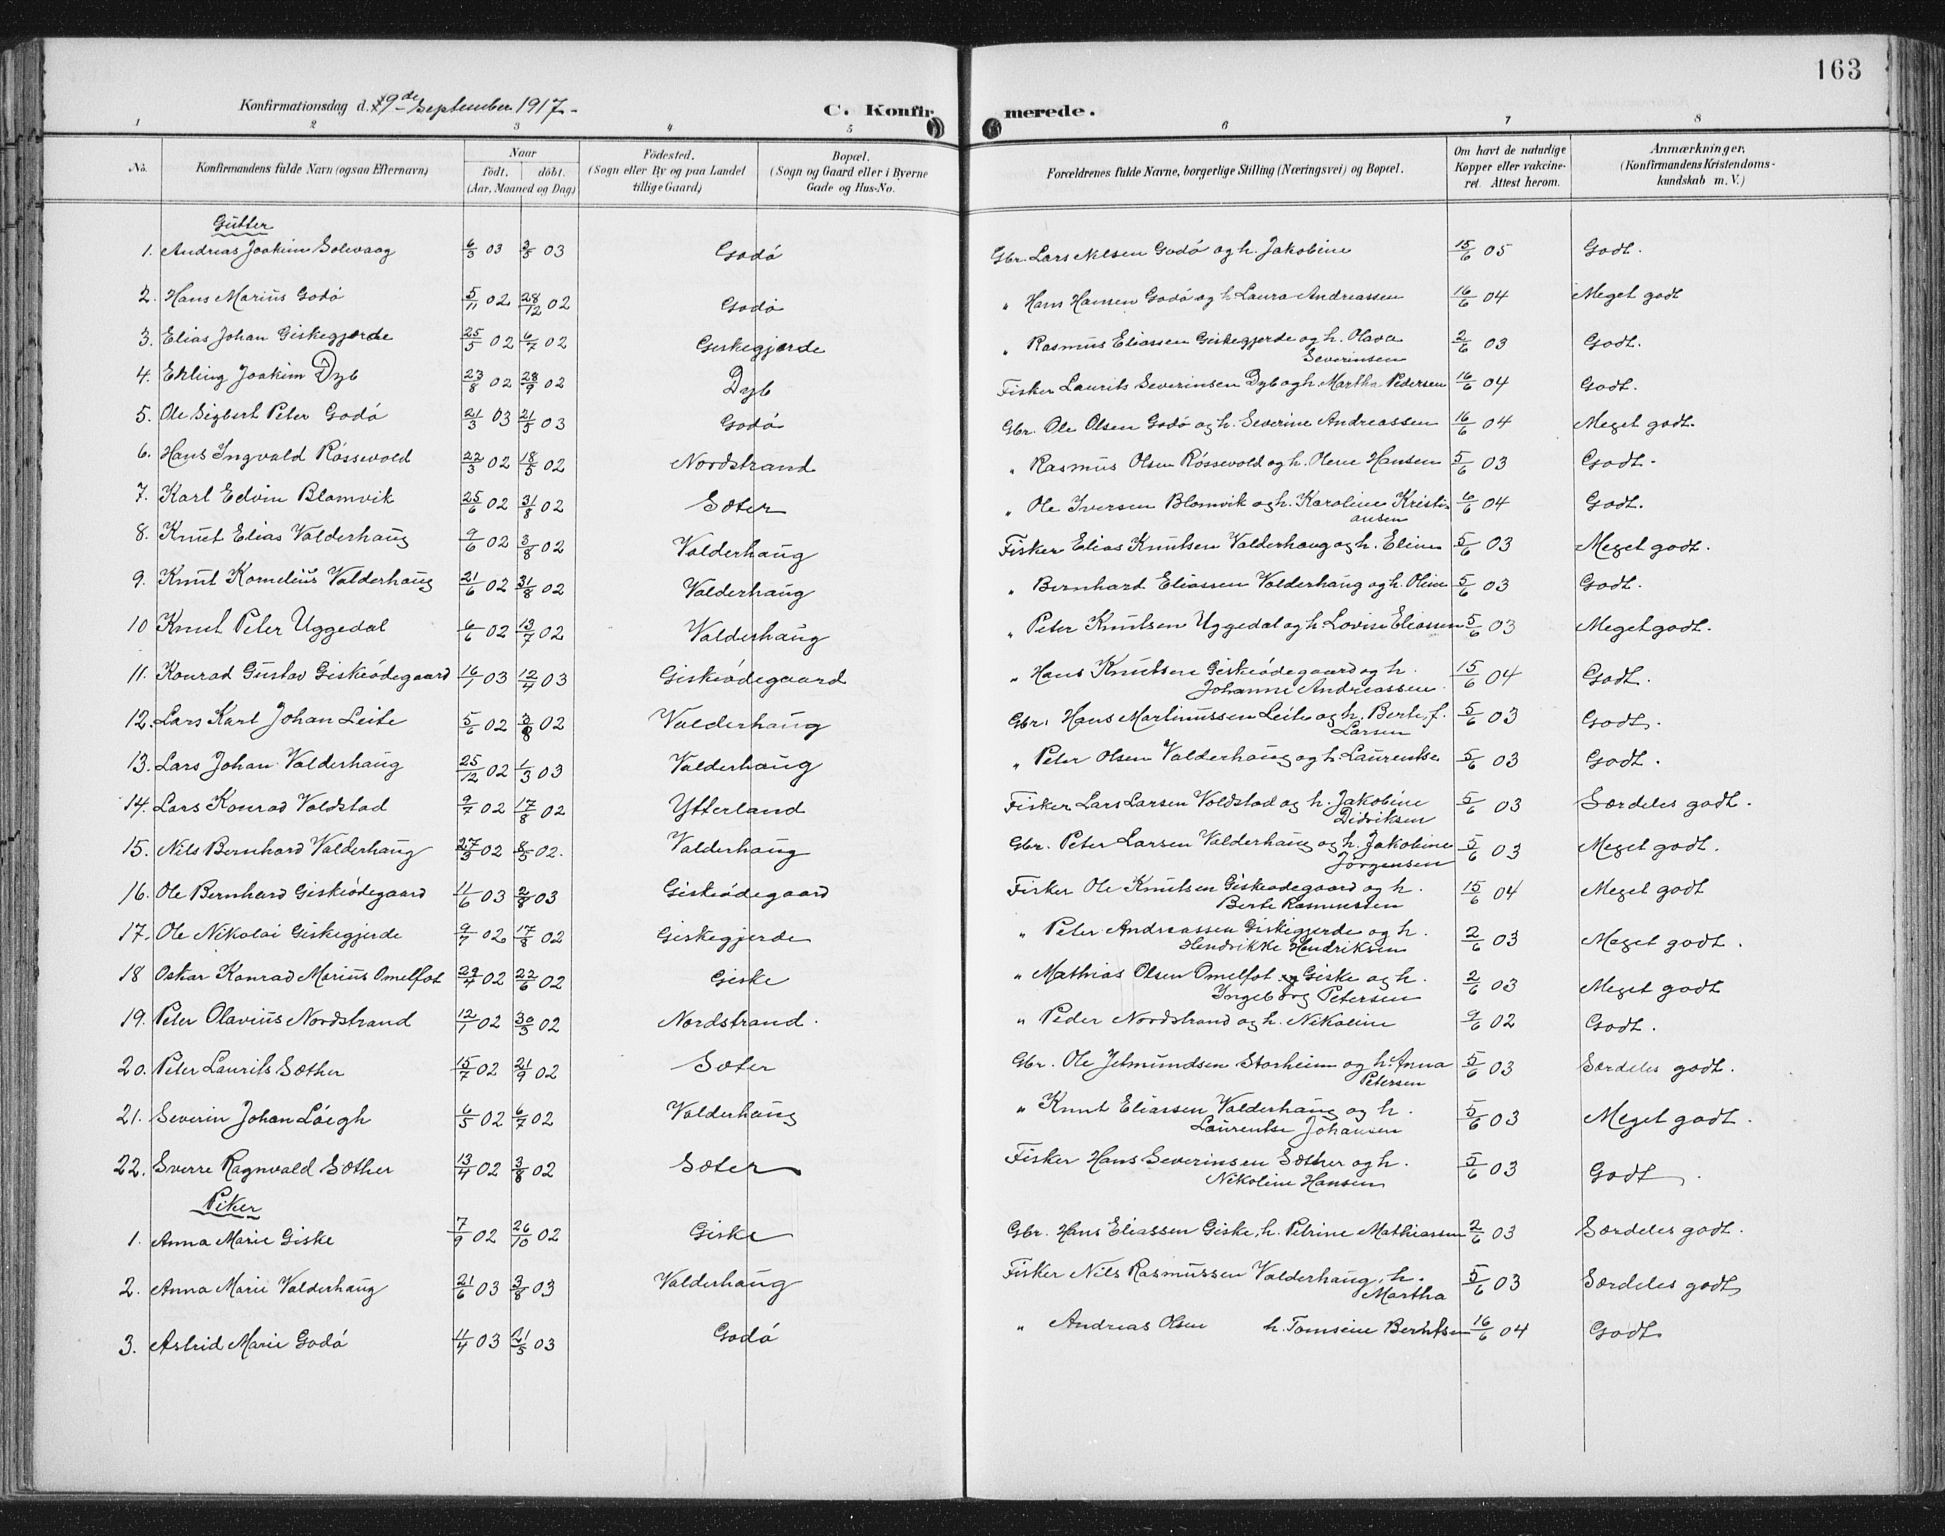 163
Konfirmationsdag d. 9de September 1917.
C. Konfirmerede.
1 2 3 4 5 6 7 8
No. Konfirmandens fulde Navn (ogsaa Efternavn) Naar født. døbt. (Aar, Maaned og Dag) Fødested. (Sogn eller By og paa Landet tillige Gaard) Bopæl. (Sogn og Gaard eller i Byerne Gade og Hus-No. Forældrenes fulde Navne, borgerlige Stilling (Næringsvei) og Bopæl. Om havt de naturlige Kopper eller vakcineret. Attest herom. Anmærkninger. (Konfirmandens Kristendomskundskab m. V.)
Gutter
1. Andreas Joakim Solevaag 6/3 03 3/5 03 Godø Gbr. Lars Nilsen Godø og h. Jakobine 15/6 05 Godt.
2. Hans Marius Godø 5/11 02 28/12 02 Godø " Hans Hansen Godø og h Laura Andreassen 16/6 04 Meget godt
3. Elias Johan Giskegjerde 25/5 02 6/7 02 Giskegjerde " Rasmus Eliassen Giskegjerde og h. Olava Severinsen 2/6 03 Godt.
4. Erling Joakim Dyb 23/8 02 28/9 02 Dyb Fisker Laurits Severinsen Dyb og h. Martha Pedersen 16/6 04 Godt.
5. Ole Sigbert Peter Godø 21/3 03 21/5 03 Godø Gbr. Ole Olsen Godø og h. Severine Andreassen 16/6 04 Meget godt.
6. Hans Ingvald Røssevold 22/3 02 18/5 02 Nordstrand " Rasmus Olsen Røssevold og h. Olene Hansen 5/6 03 Godt.
7. Karl Edvin Blomvik 25/6 02 31/8 02 Sæter " Ole Iversen Blomvik og h. Karoline Kristiansen 16/6 04 Godt.
8. Knut Elias Valderhaug 9/6 02 3/8 02 Valderhaug Fisker Elias Knutsen Valderhaug og h. Eline 5/6 03 Meget godt.
9. Knut Kornelius Valderhaug 21/6 02 31/8 02 Valderhaug " Bernhard Eliassen Valderhaug og h. Oline 5/6 03 Godt.
10 Knut Peter Uggedal 6/6 02 13/7 02 Valderhaug " Peter Knutsen Uggedal og h. Lovise Eliassen 5/6 03 Meget godt.
11. Konrad Gustav Giskeødegaard 16/1 03 12/4 03 Giskeødegaard " Hans Knutsen Giskeødegaard og h. Johanne Andreassen 15/6 04 Godt.
12. Lars Karl Johan Leite 5/6 02 3/8 02 Valderhaug Gbr. Hans Martinussen Leite og h. Berte, f. Larsen 5/6 03 Godt.
13. Lars Johan Valderhaug 25/12 02 1/3 03 Valderhaug " Peter Olsen Valderhaug og h. Laurentse 5/6 03 Godt.
14. Lars Konrad Voldstad 9/7 02 17/8 02 Ytterland Fisker Lars Larsen Voldstad og h. Jakobine Didriksen 5/6 03 Særdeles godt.
15. Nils Bernhard Valderhaug 27/3 02 8/5 02. Valderhaug Gbr. Peter Larsen Valderhaug og h. Jakobine Jørgensen 5/6 03 Meget godt.
16. Ole Bernhard Giskeødegaard 11/6 03 2/8 03 Giskeødegaard Fisker Ole Knutsen Giskeødegaard og h. Berte Rasmussen 15/6 04 Meget godt
17. Ole Nikolai Giskegjerde 9/7 02 17/8 02 Giskegjerde " Peter Andreassen Giskegjerde og h. Hendrikke Hendriksen 2/6 03 Meget godt.
18 Oskar Konrad Marius Omelfot 29/4 02 22/6 02 Giske " Mathias Olsen Omelfot Giske og h. Ingeborg Petersen 2/6 03 Meget godt
19. Peter Olavius Nordstrand 12/1 02 30/3 02 Nordstrand. " Peder Nordstrand og h. Nikoline 9/6 02 Godt.
20. Peter Laurits Sæther 15/7 02 21/9 02 Sæter Gbr. Ole Jetmundsen Storheim og h. Anna Petersen 5/6 03 Særdeles godt.
21. Severin Johan Løegh 6/5 02 6/7 02 Valderhaug " Knut Eliassen Valderhaug og h. Laurentse Johansen 5/6 03 Meget godt.
22. Sverre Ragnvald Sæther 13/4 02 3/8 02 Sæter Fisker Hans Severinsen Sæther og h. Nikoline Hansen 5/6 03 Godt.
Piker
1. Anna Marie Giske 7/9 02 26/10 02 Giske Gbr. Hans Eliassen Giske, h. Petrine Mathiassen 2/6 03 Særdeles godt.
2. Anna Marie Valderhaug 21/6 03 3/8 03 Valderhaug Fisker Nils Rasmussen Valderhaug, h. Martha 5/6 03 Særdeles godt
3. Astrid Marie Godø 11/4 03 21/5 03 Godø " Andreas Olsen h. Tomsine Berntsen 16/6 04 Godt